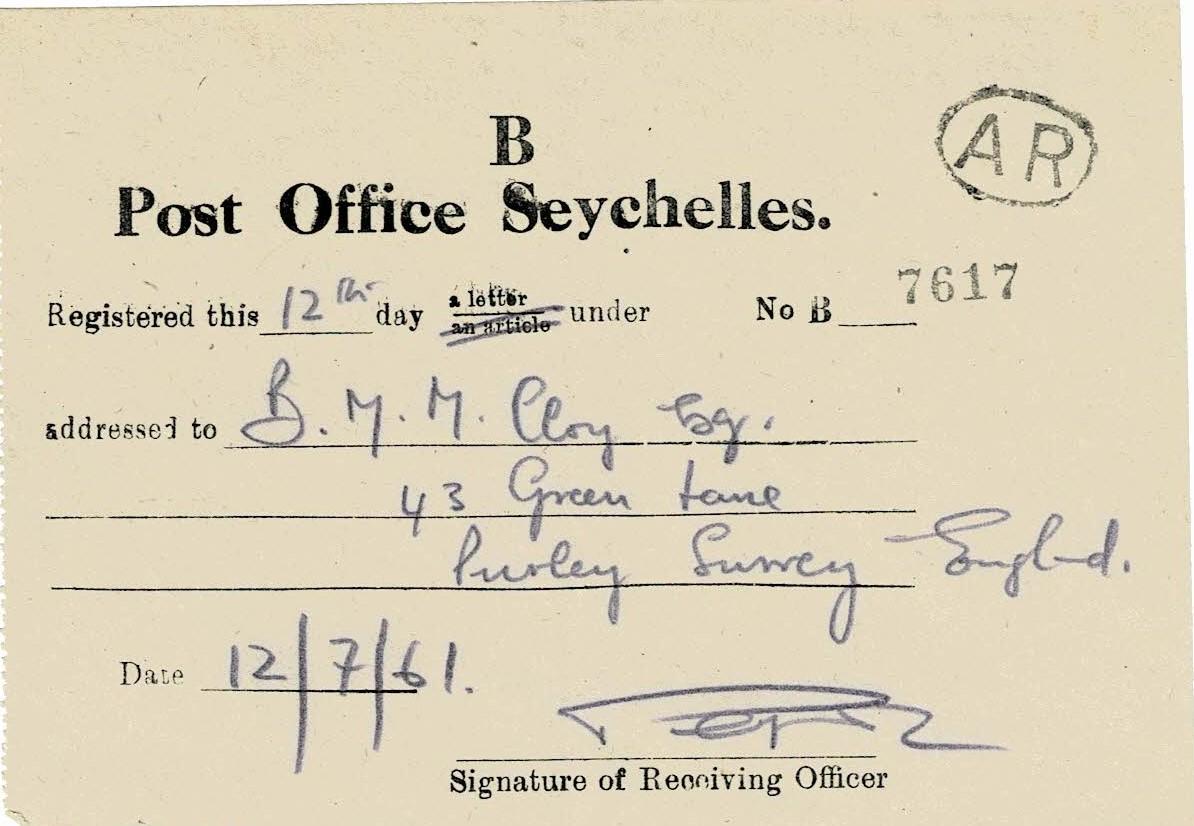 B
AR
Post Office Seychelles.
Registered this 12th day a letter an article under No B 7617
addressed to B. M. M. Cloy Esq.
43 Green Lane
Purley Surrey England.
Date 12/7/61.
Signature of Receiving Officer